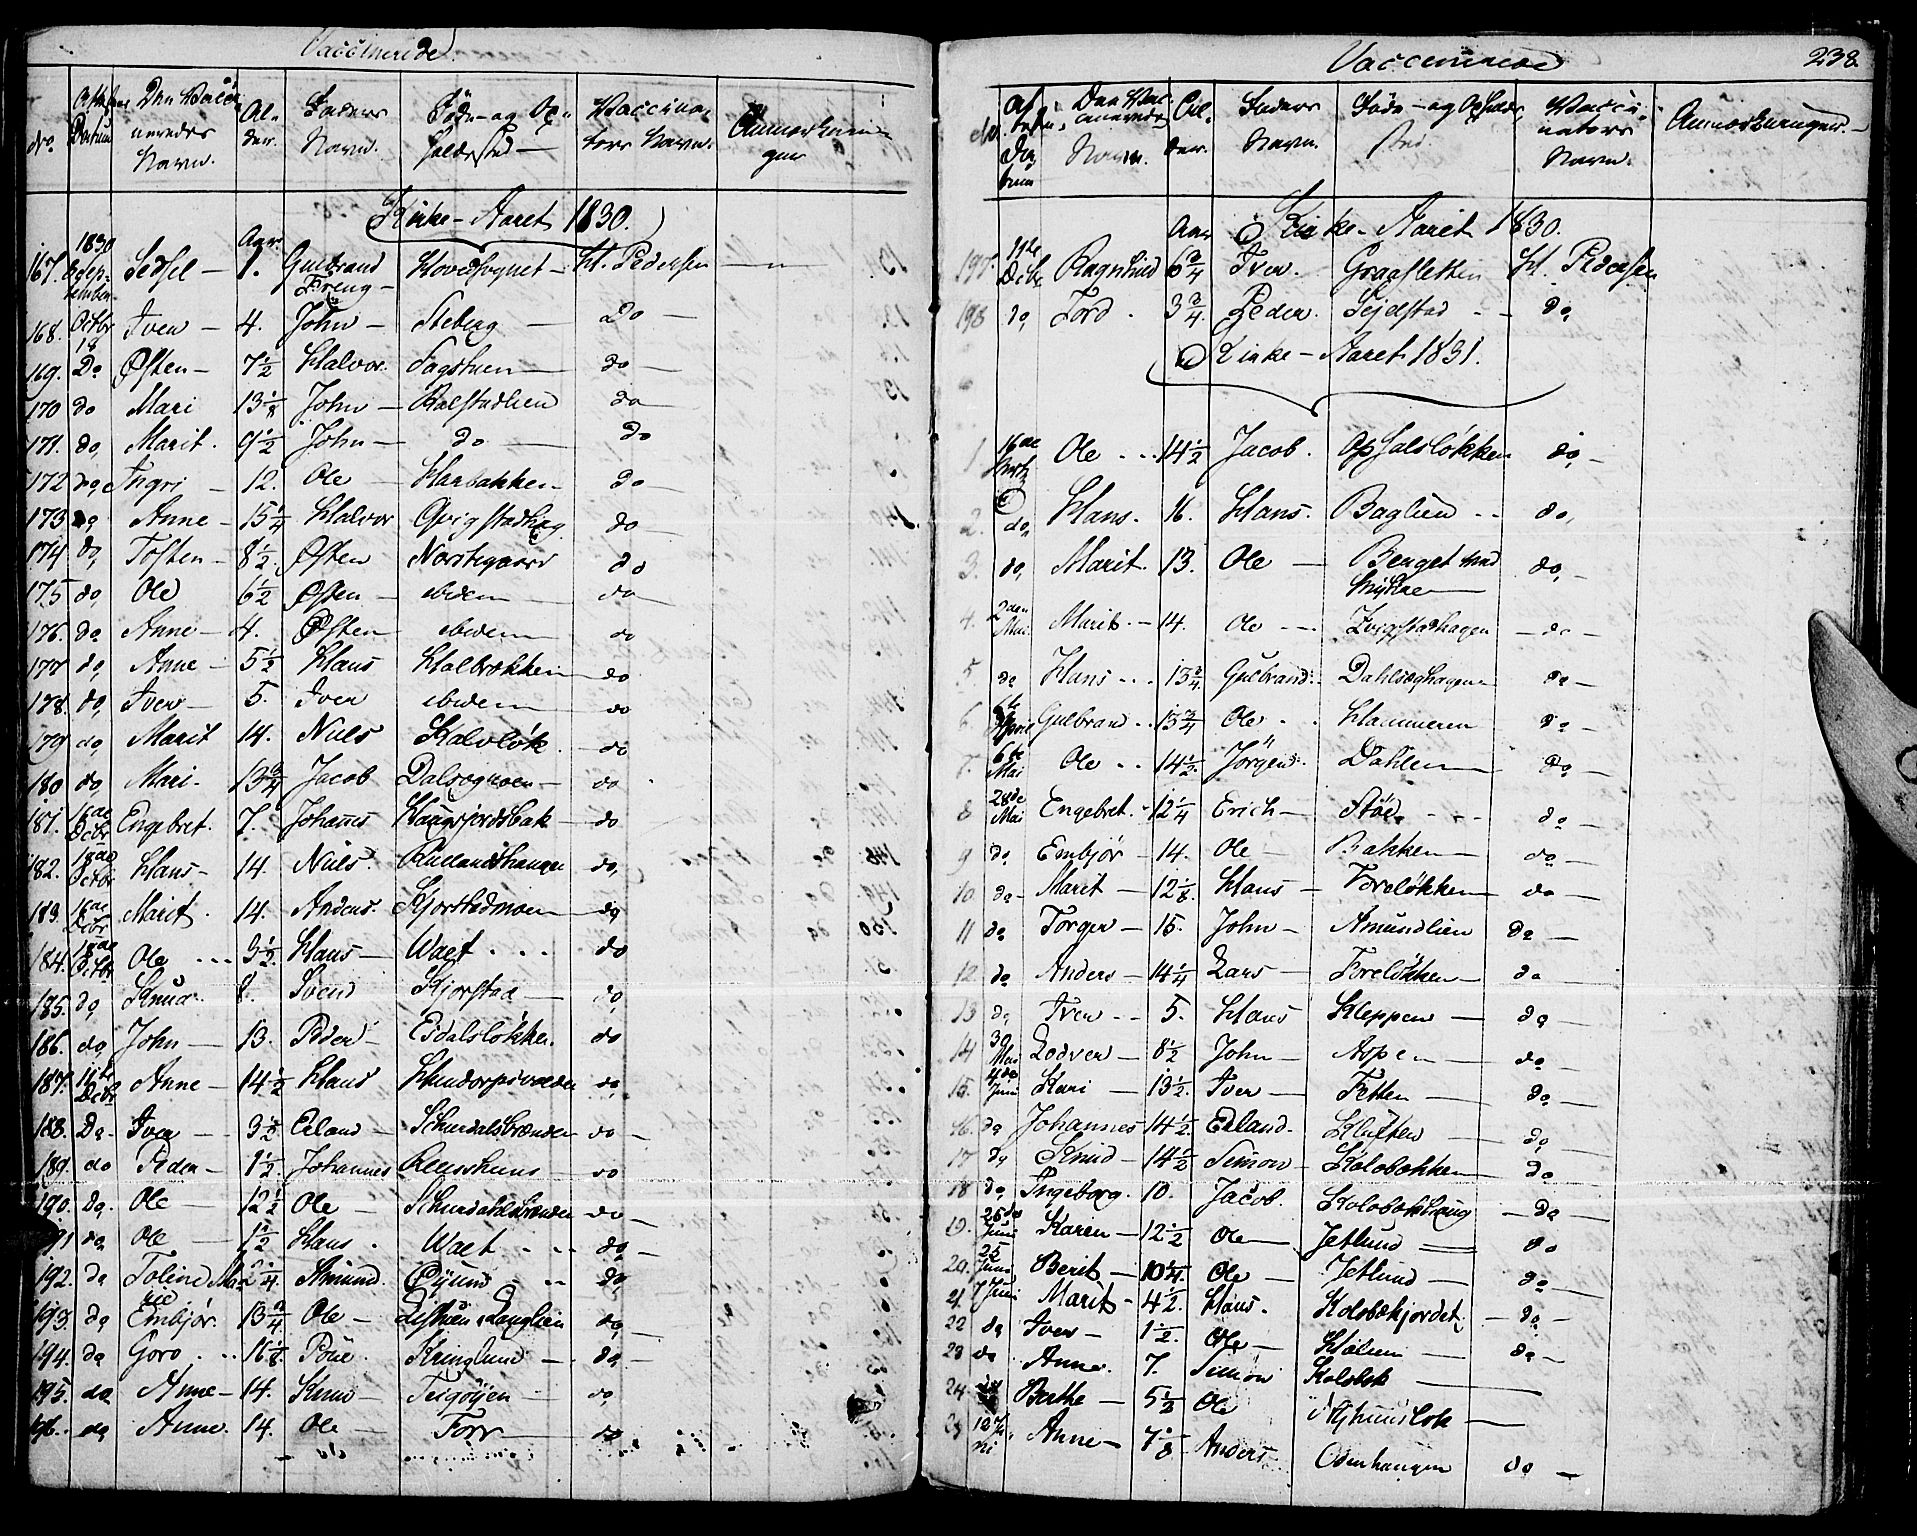 Vaccinerede.
No. Attestens Datum Den Vaccinneredes Navn. Alder. Faders Navn. Føde- og Opholdssted Vaccinateurs Navn. Anmærkninger
Kirke-Aaret 1830.
Aar.
167. 1830 September Sedsel — 1. Gulbrand Hovedsognet — H. Pedersen —
168. Octbr 18 Iver — 4. John — Steberg — Do —
169. Do Østen — 7 1/2 Halvor. Fagstuen — do —
170 do Mari 13 1/8 John — Balstadlien do
171. do, Marit. 9 1/2 John — do — do
172 do, Ingri — 12. Ole — Harbakken — do —
173 do Anne — 15 1/4 Halvor Qvigstadhag do
174 do, Tosten — 8 1/2. Østen Nordregaard do
175 do, Ole 6 1/2 Østen — ibidem — do —
176. do Anne — 4. Østen ibidem — do
177 do, Anne — 5 1/2 Hans Holbrækken — do
178. do, Iver — 5. Iver ibidem — do
179 do, Marit 14. Niels Kalvløk do
180 do, Mari. 13 3/4 Jacob Dalsegmoen — do
181. 16de Dcbr Engebret. 7. Johannes Haugsjordsbak — do
182. 18de Octbr Hans — 14. Niels. Rudlandshaugen do,
183. 16de Dcbr Marit. 14. Anders. Kjorstadmoen — do
184. 18de Octbr Ole ... 3 1/2. Hans — Waet ... do
185. do, Knud. 8. Svend Kjorstad — do,
186. do, John — 13. Peder — Eidalsløkken. do
187. 11te Dcbr Anne — 14 1/2 Hans Hundorpsvolden do
188. Do. Iver — 3 1/2 Erland — Schurdalsbrænden do —
189. do Peder — 1 1/2. Johannes — do
190. do. Ole — 12 1/2 Ole — Schurdalsbrænden do —
191 do Ole — 1 1/2 Hans. Waet .. do —
192. do Toline Marie 2 1/4 Amund. Øyum .. do,
193. do Embjør. 13 3/4 Ole — Listuen, Langlien do,
194. do Goro .. 11 1/8. Poue. Kringlund — do, —
195. do, Anne — 14. Knud — Teigøyen — do,
196. do Anne. 14. Ole — Forr — do
Vaccinerede 238.
No. Attestens Datum Den Vaccinerede Navn. Alder. Faders Navn. Føde- og Opholds Sted. Vaccinateurs Navn. Anmærkninger.
Aar Kirke-Aaret 1830.
197. 11te Dcbr Ragnhild 6 3/4 Iver. Graasletten H. Pedersen
198 do, Tord. 3 3/4. Peder. Sejelstad — do,
Kirke-Aaret 1831.
1 16de Ole ... 14 1/2 Jacob. Ophalsløkken do, —
2. do, Hans. 16. Hans. Baglien .. do,
3. do, Marit. 13. Ole — Berget ved
do, —
4. 2den Mai Marit — 14. Ole — Qvigstadhagen — do —
5. do Hans ... 13 3/4. Gulbrand. Dahlseghagen do —
6. April Gulbran .. 13 3/4 Ole .. Hammeren do —
7. 6te Mai Ole .. 14 1/2. Jörgen. Dahlen — Do, —
8 28de Mai Engebret. 12 1/4 Erich — Stöe — do —
9 do Embjör — 14. Ole — Bakken — do —
10. do — Marit — 12 1/8. Hans — Toreløkken — do —
11 do Torger — 15. John — Amundlien do —
12. do Anders — 14 1/4 Lars — Foreløkken — do
13 do Iver — 5. Hans Kleppen — do —
14 30 Mai Lodver — 8 1/2 John — Aspen — do —
15. 4de Juni Kari — 13 1/2. Iver — Fetten — do —
16. do Johannes 14 1/2. Erland. Kluften — do —
17 do Knud — 14 1/2 Simon — Kolobækken — do
18 do Ingeborg. 10. Jacob. Kolobækhaug — do —
19. 25de Juni Karen — 12 1/2 Ole — Jetlund — do
20. 25 Juni Berit — 10 1/4. Ole — Jetlund — do —
21. 7 Juni Marit — 4 1/2. Hans. Kolobækjordet, — do —
22 do Iver — 1 1/2. Ole — Hølen — do —
23 do Anne. 7. Simon Kolobek —
24. Berthe — 5 1/2 Ole —
25 12 Juni Anne — 7 1/8 Anders Odenhaugen do —